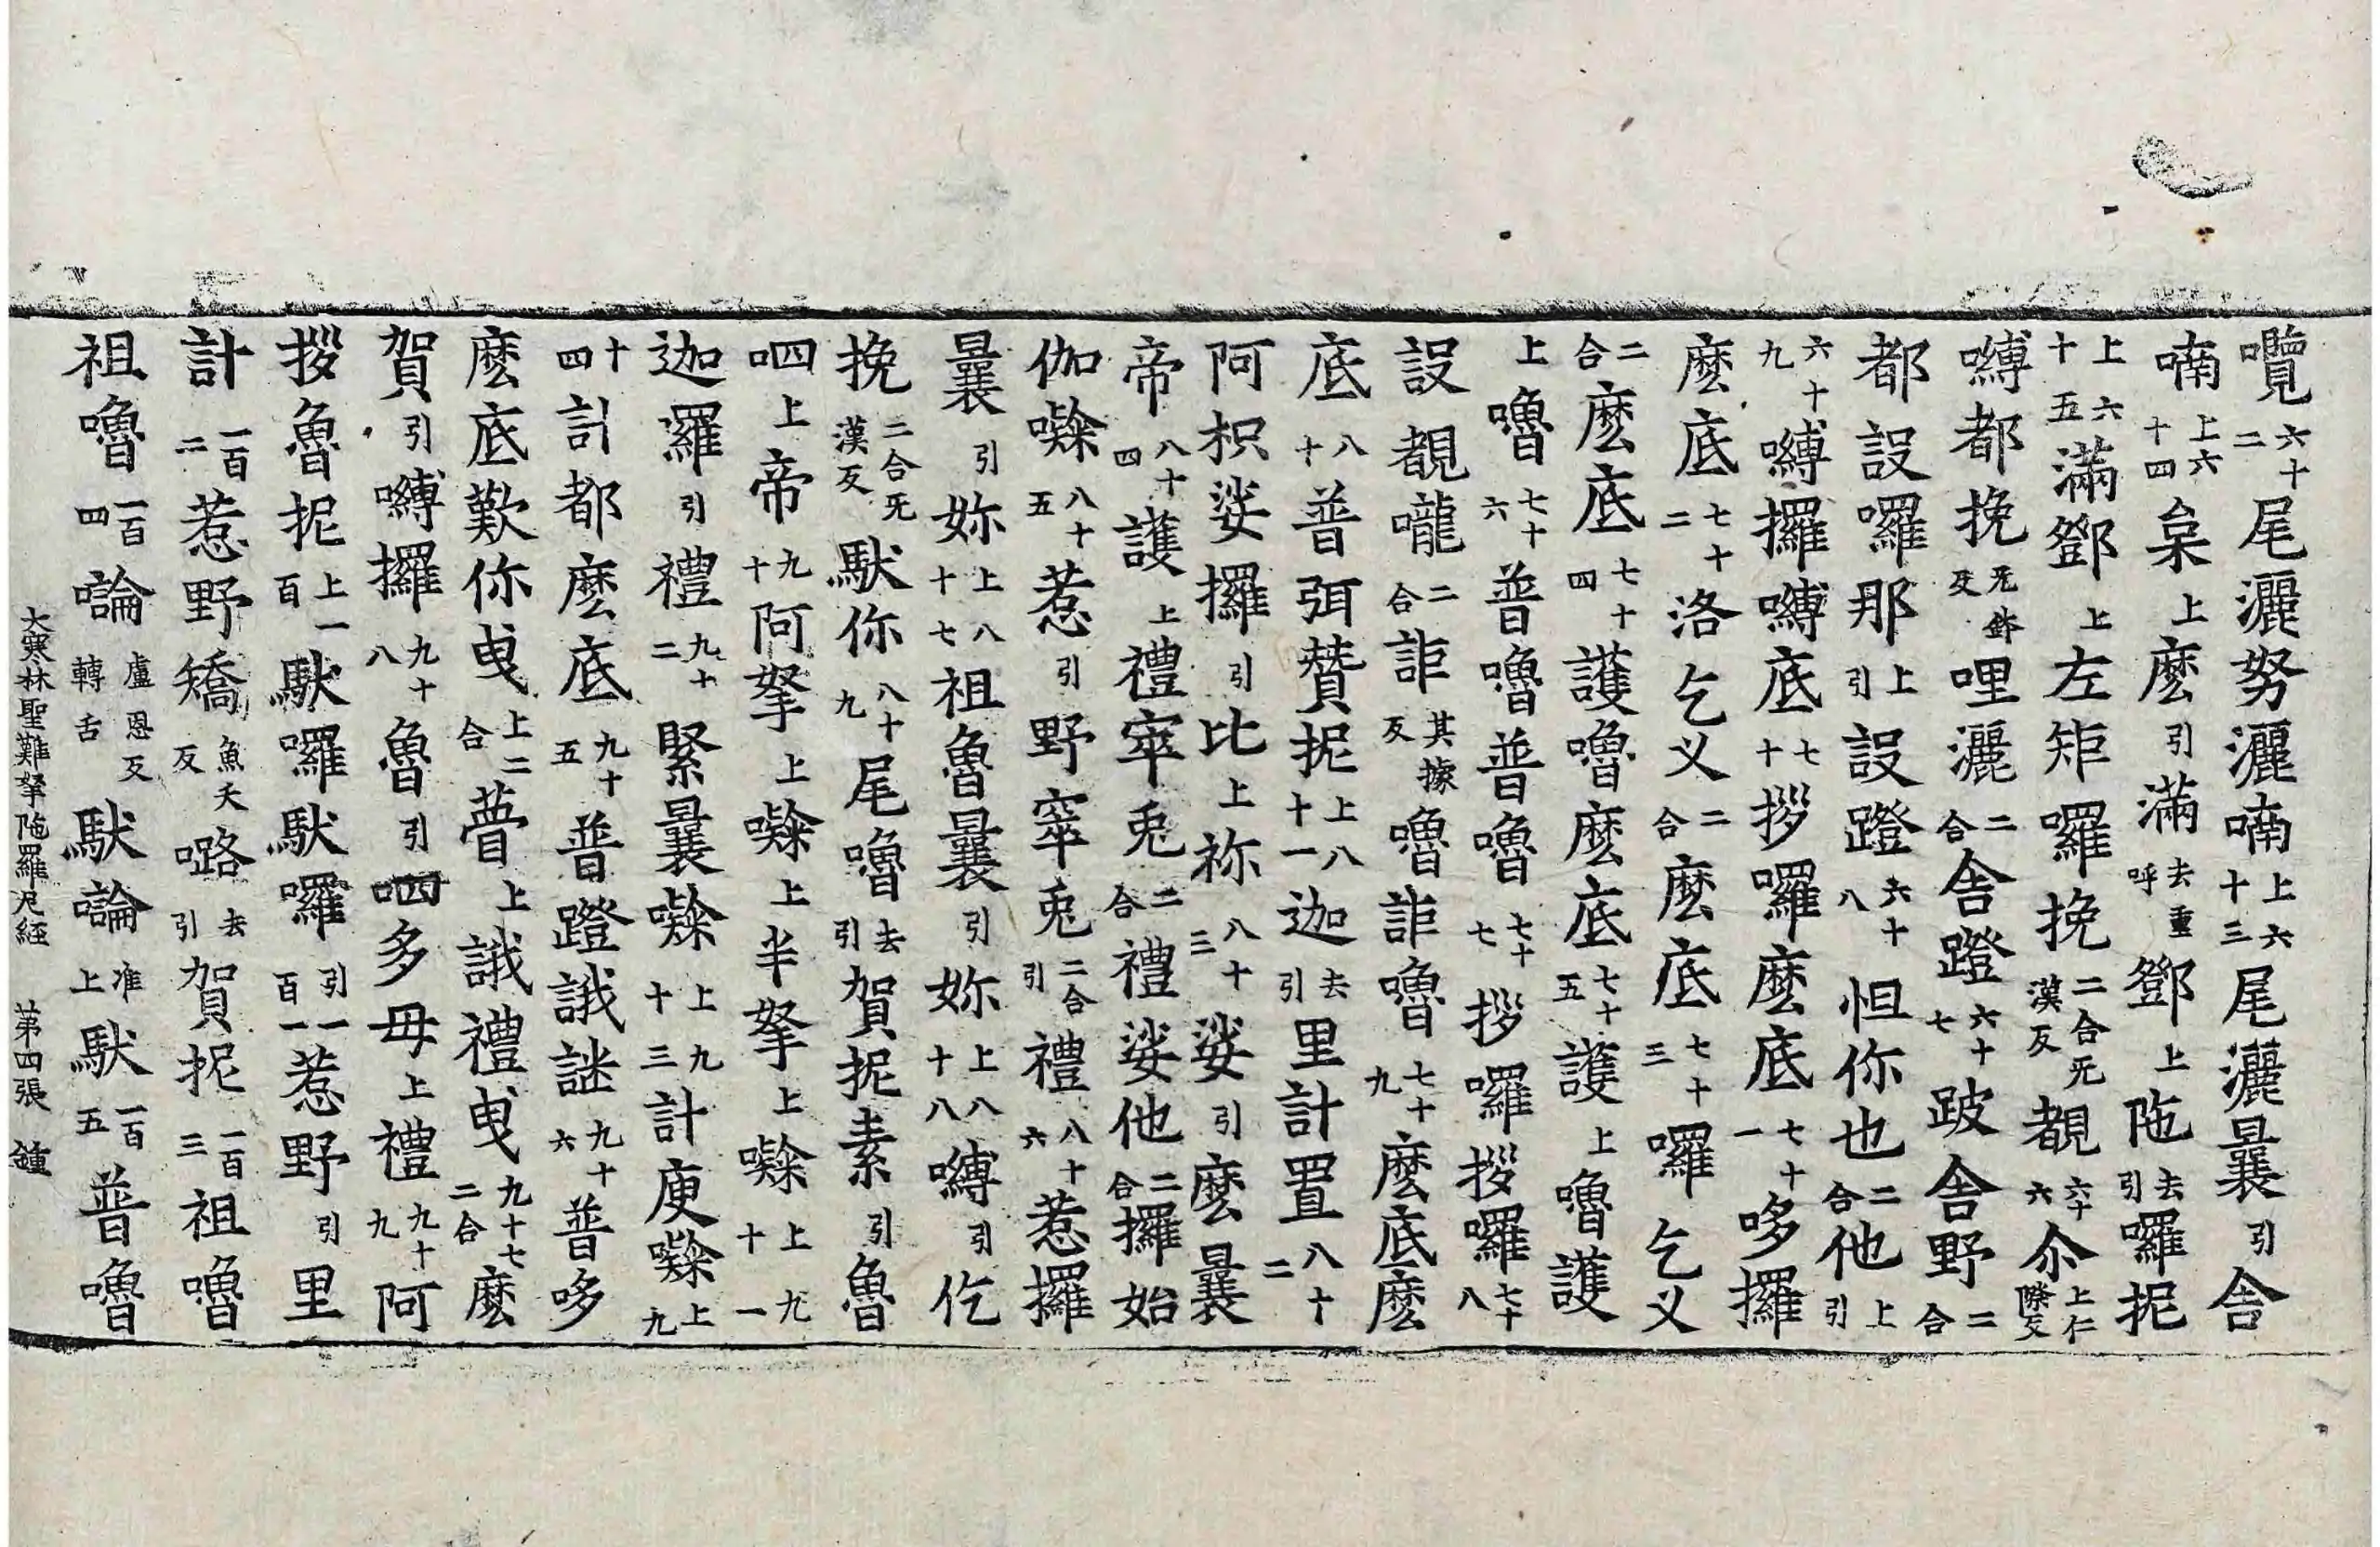 囕六十二尾灑努灑喃上六十三尾灑曩引舍
喃上六十四枲上麽引滿去重呼鄧上陁去引囉抳
上六十五滿鄧上左矩囉挽二合无漢反覩六十六尒上仁際反
嚩都挽无鉢反哩灑二合舍蹬六十七跛舍野二合
都設囉那上引設蹬六十八怛你也二合他上引
六十九嚩攞嚩底七十拶囉麽底七十一哆攞
麽底七十二洛乞义二合麽底七十三囉乞义
二合麽底七十四護嚕麽底七十五護上嚕護
上嚕七十六普嚕普嚕七十七拶囉拶囉七十八
設覩嚨二合詎其據反嚕詎嚕七十九麽底麽
底八十普弭贊抳上八十一迦去引里計置八十二
阿枳娑攞引比上祢八十三娑引麽曩
帝八十四護上禮窣兎二合禮娑他二合攞始
伽㘑八十五惹引野窣兎二合引禮八十六惹攞
曩引妳上八十七祖魯曩引妳上八十八嚩引仡
挽二合无漢反馱你八十九尾嚕去引賀抳素引魯
呬上帝九十阿拏上㘑上半拏上㘑上九十一
迦羅引禮九十二緊曩㘑上九十三計庾㘑上九
十四計都麽底九十五普蹬誐謎九十六普哆
麽底歎你曳上二合瞢上誐禮曳九十七二合麽
賀引嚩攞九十八魯引呬多母上禮九十九阿
拶魯抳上一百馱囉馱囉引一百一惹野引里
計一百二惹野矯魚夭反㗨去引賀抳一百三祖嚕
祖嚕一百四㖮盧恩反轉舌馱㖮准上馱一百五普嚕
大寒林聖難拏陁羅尼經 第四張 鍾